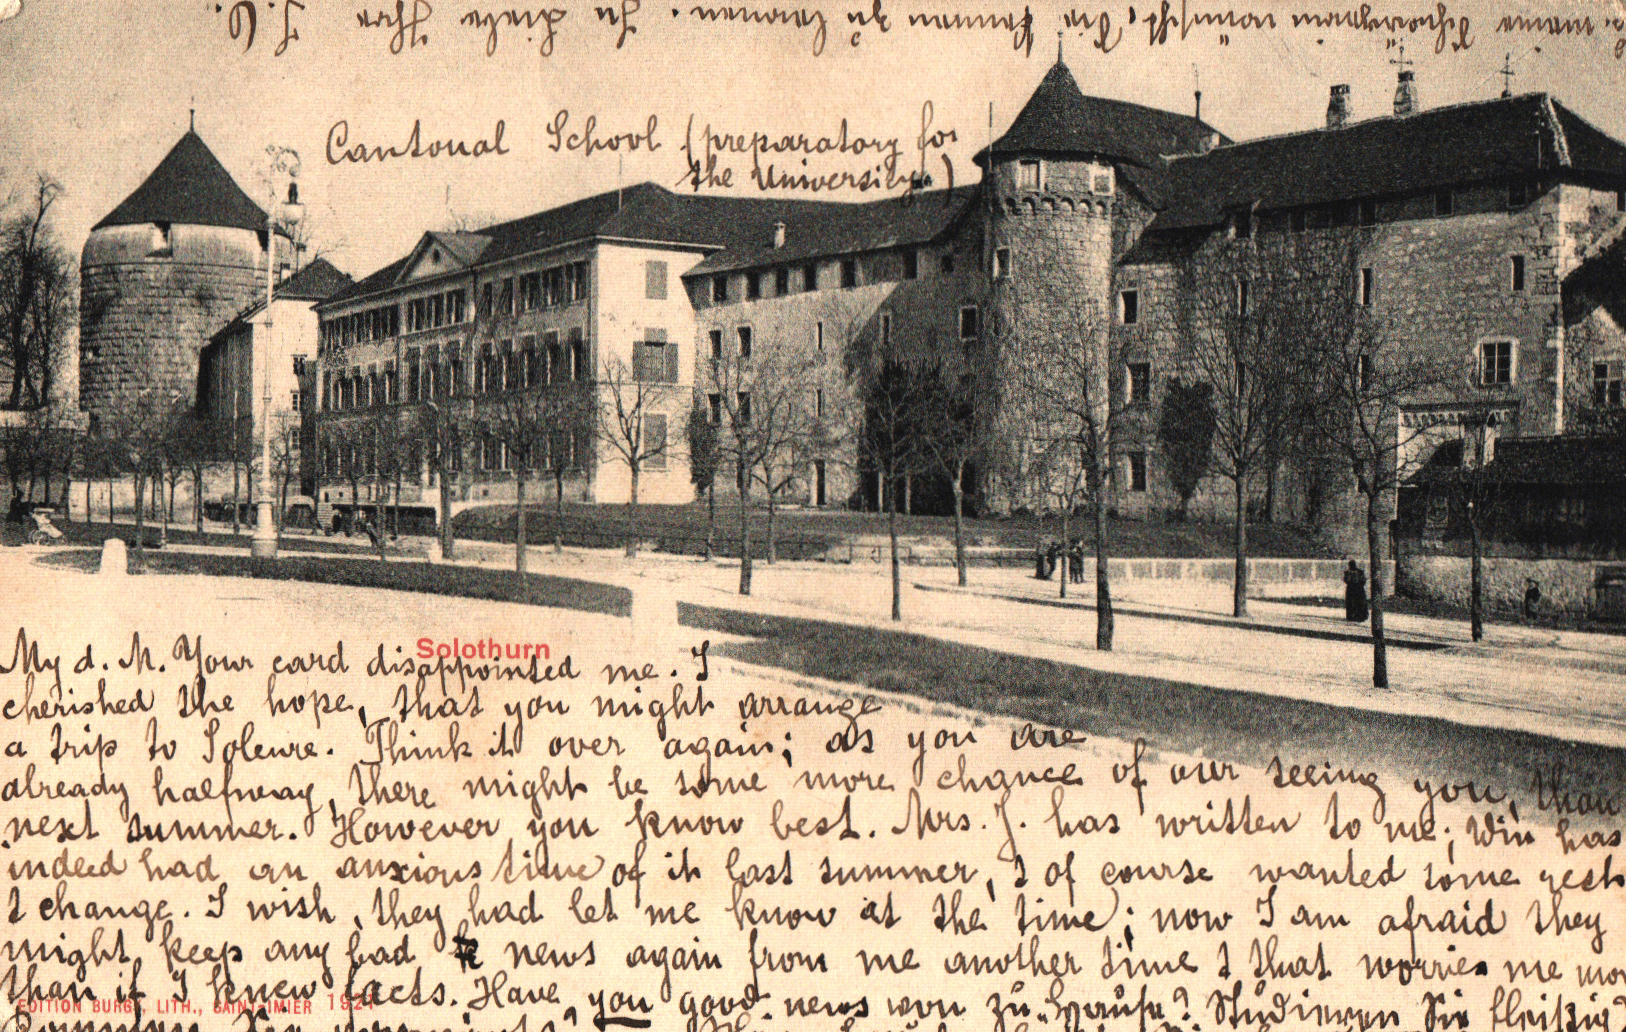 Cantonal School (preparatory for
the University.)
Solothurn
My d. M. Your card disappointed me. I
cherished the hope, that you might arrange
a trip to Soleure. Think it over again; as you are
already halfway, there might be some more chance of our seeing you, than
next summer. However you know best. Mrs. J. has written to me; Win has
indeed had an anxious time of it last summer, & of course wanted some rest
& change. I wish, they had let me know at the time; now I am afraid they
might keep any bad news again from me another time & that worries me more
than if I knew facts. Have you good news von zu Hause? Studieren Sie fleißig?
EDITION BURGY, LITH., SAINT-IMIER 1921